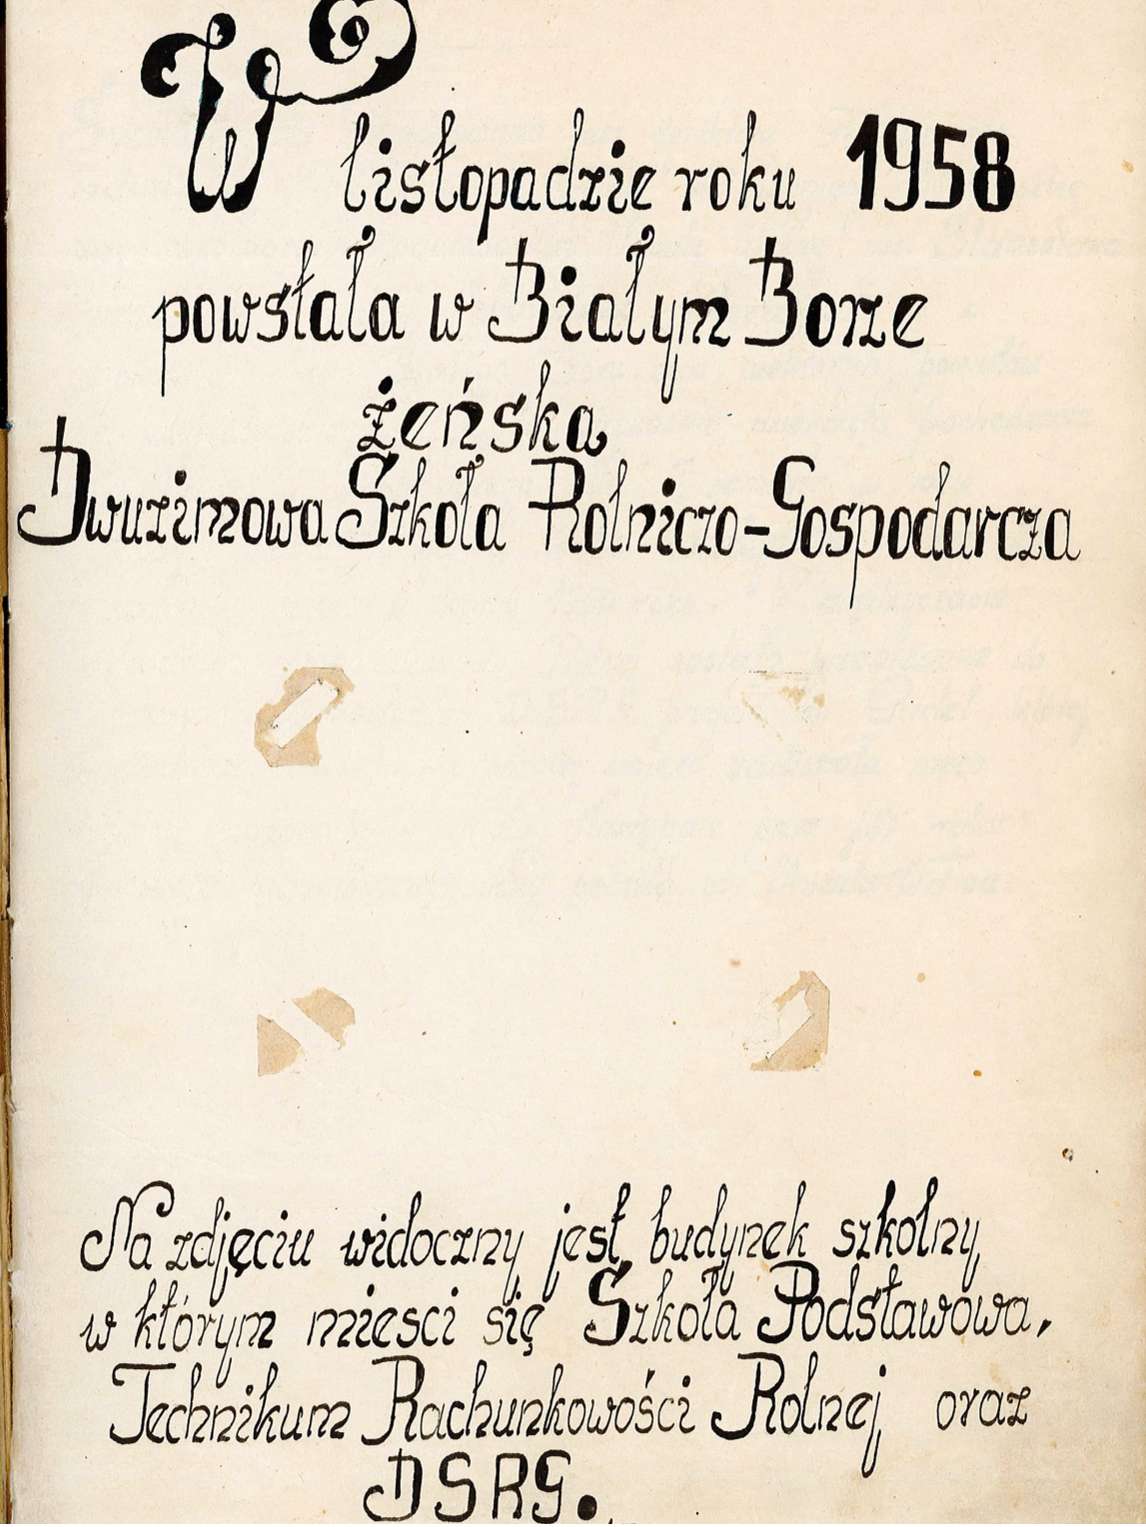 W listopadzie roku 1958
powstała w Białym Borze
żeńska
Dwuzimowa Szkoła Rolniczo-Gospodarcza
Na zdjęciu widoczny jest budynek szkolny
w którym miesci się Szkoła Podstawowa,
Technikum Rachunkowości Rolnej oraz
DSRG.